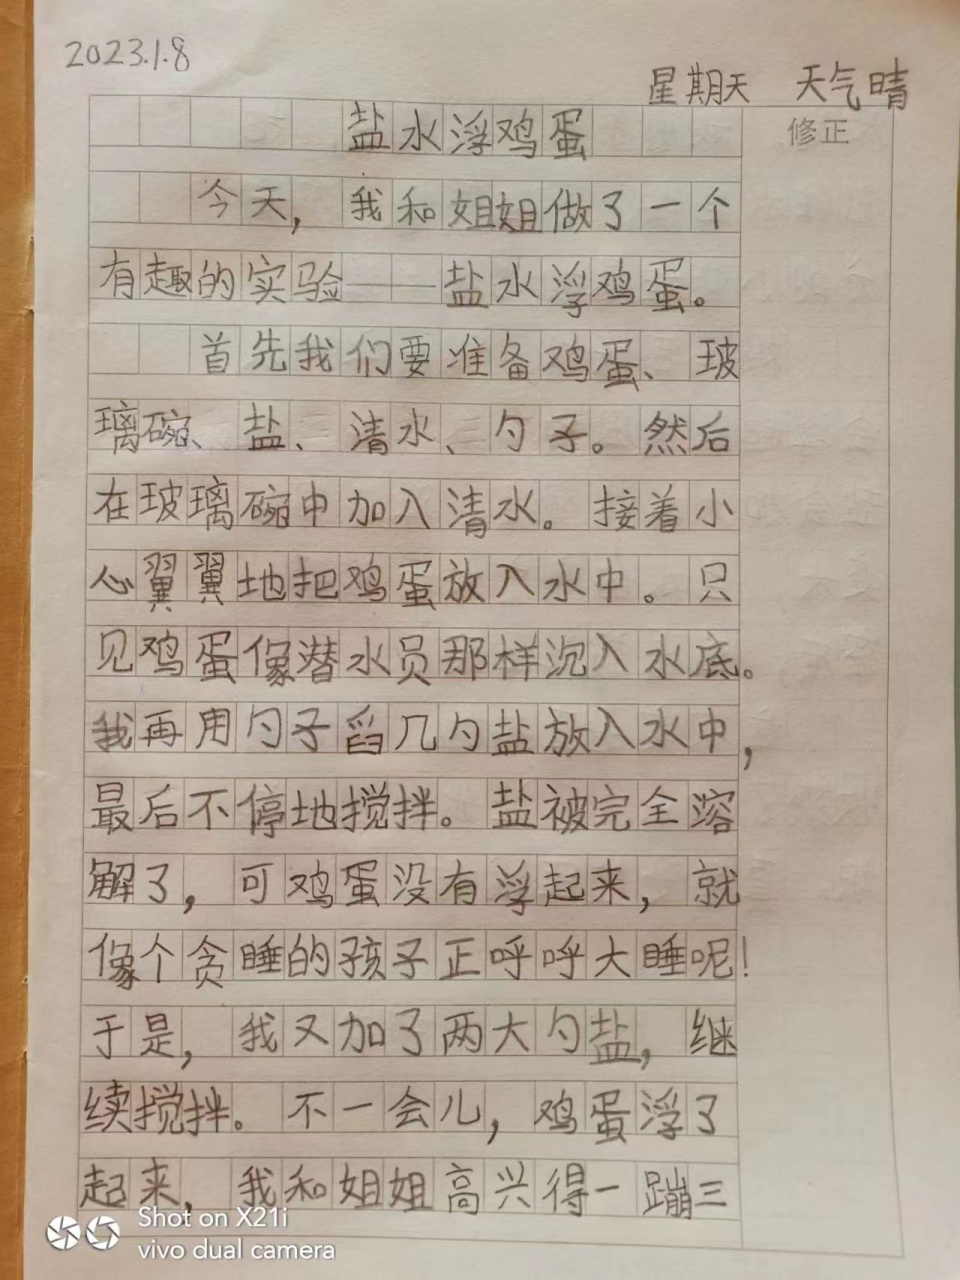 2023.1.8
星期天 天气晴
修正
盐水浮鸡蛋
今天，我和姐姐做了一个
有趣的实验——盐水浮鸡蛋。
首先我们要准备鸡蛋、玻
璃碗、盐、清水、勺子。然后
在玻璃碗中加入清水。接着小
心翼翼地把鸡蛋放入水中。只
见鸡蛋像潜水员那样沉入水底。
我再用勺子舀几勺盐放入水中，
最后不停地搅拌。盐被完全溶
解了，可鸡蛋没有浮起来，就
像个贪睡的孩子正呼呼大睡呢！
于是，我又加了两大勺盐，继
续搅拌。不一会儿，鸡蛋浮了
起来，我和姐姐高兴得一蹦三
Shot on X21i
vivo dual camera